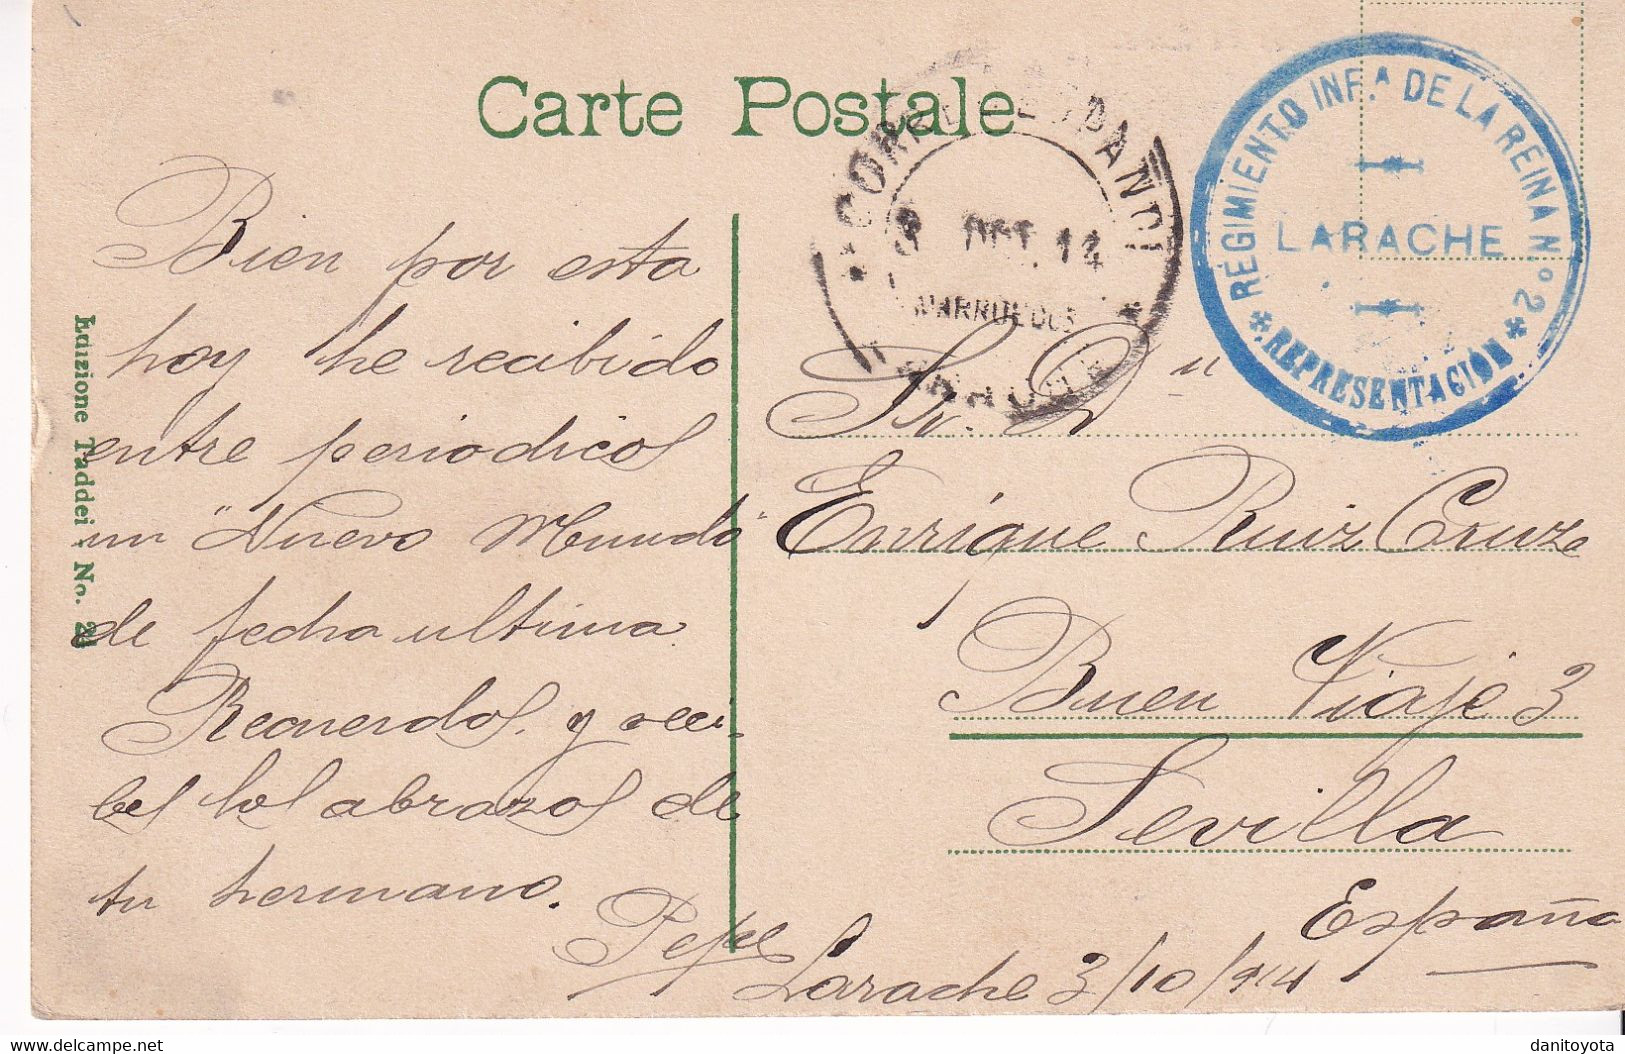 Carte Postale
REGIMIENTO INF.ᴬ DE LA REINA N.º 2
LARACHE
* REPRESENTACIÓN *
OCT. 14
MARRUECOS
Bien por esta
hoy he recibido
entre periodicos
un "Nuevo Mundo"
de fecha ultima
Recuerdos y reci-
bes los abrazos de
tu hermano.
Pepe
Larache 3/10/914
Sr. Dn
Enrique Ruiz Cruz
Buen Viaje 3
Sevilla
España
Edizione Taddei No.
danitoyota